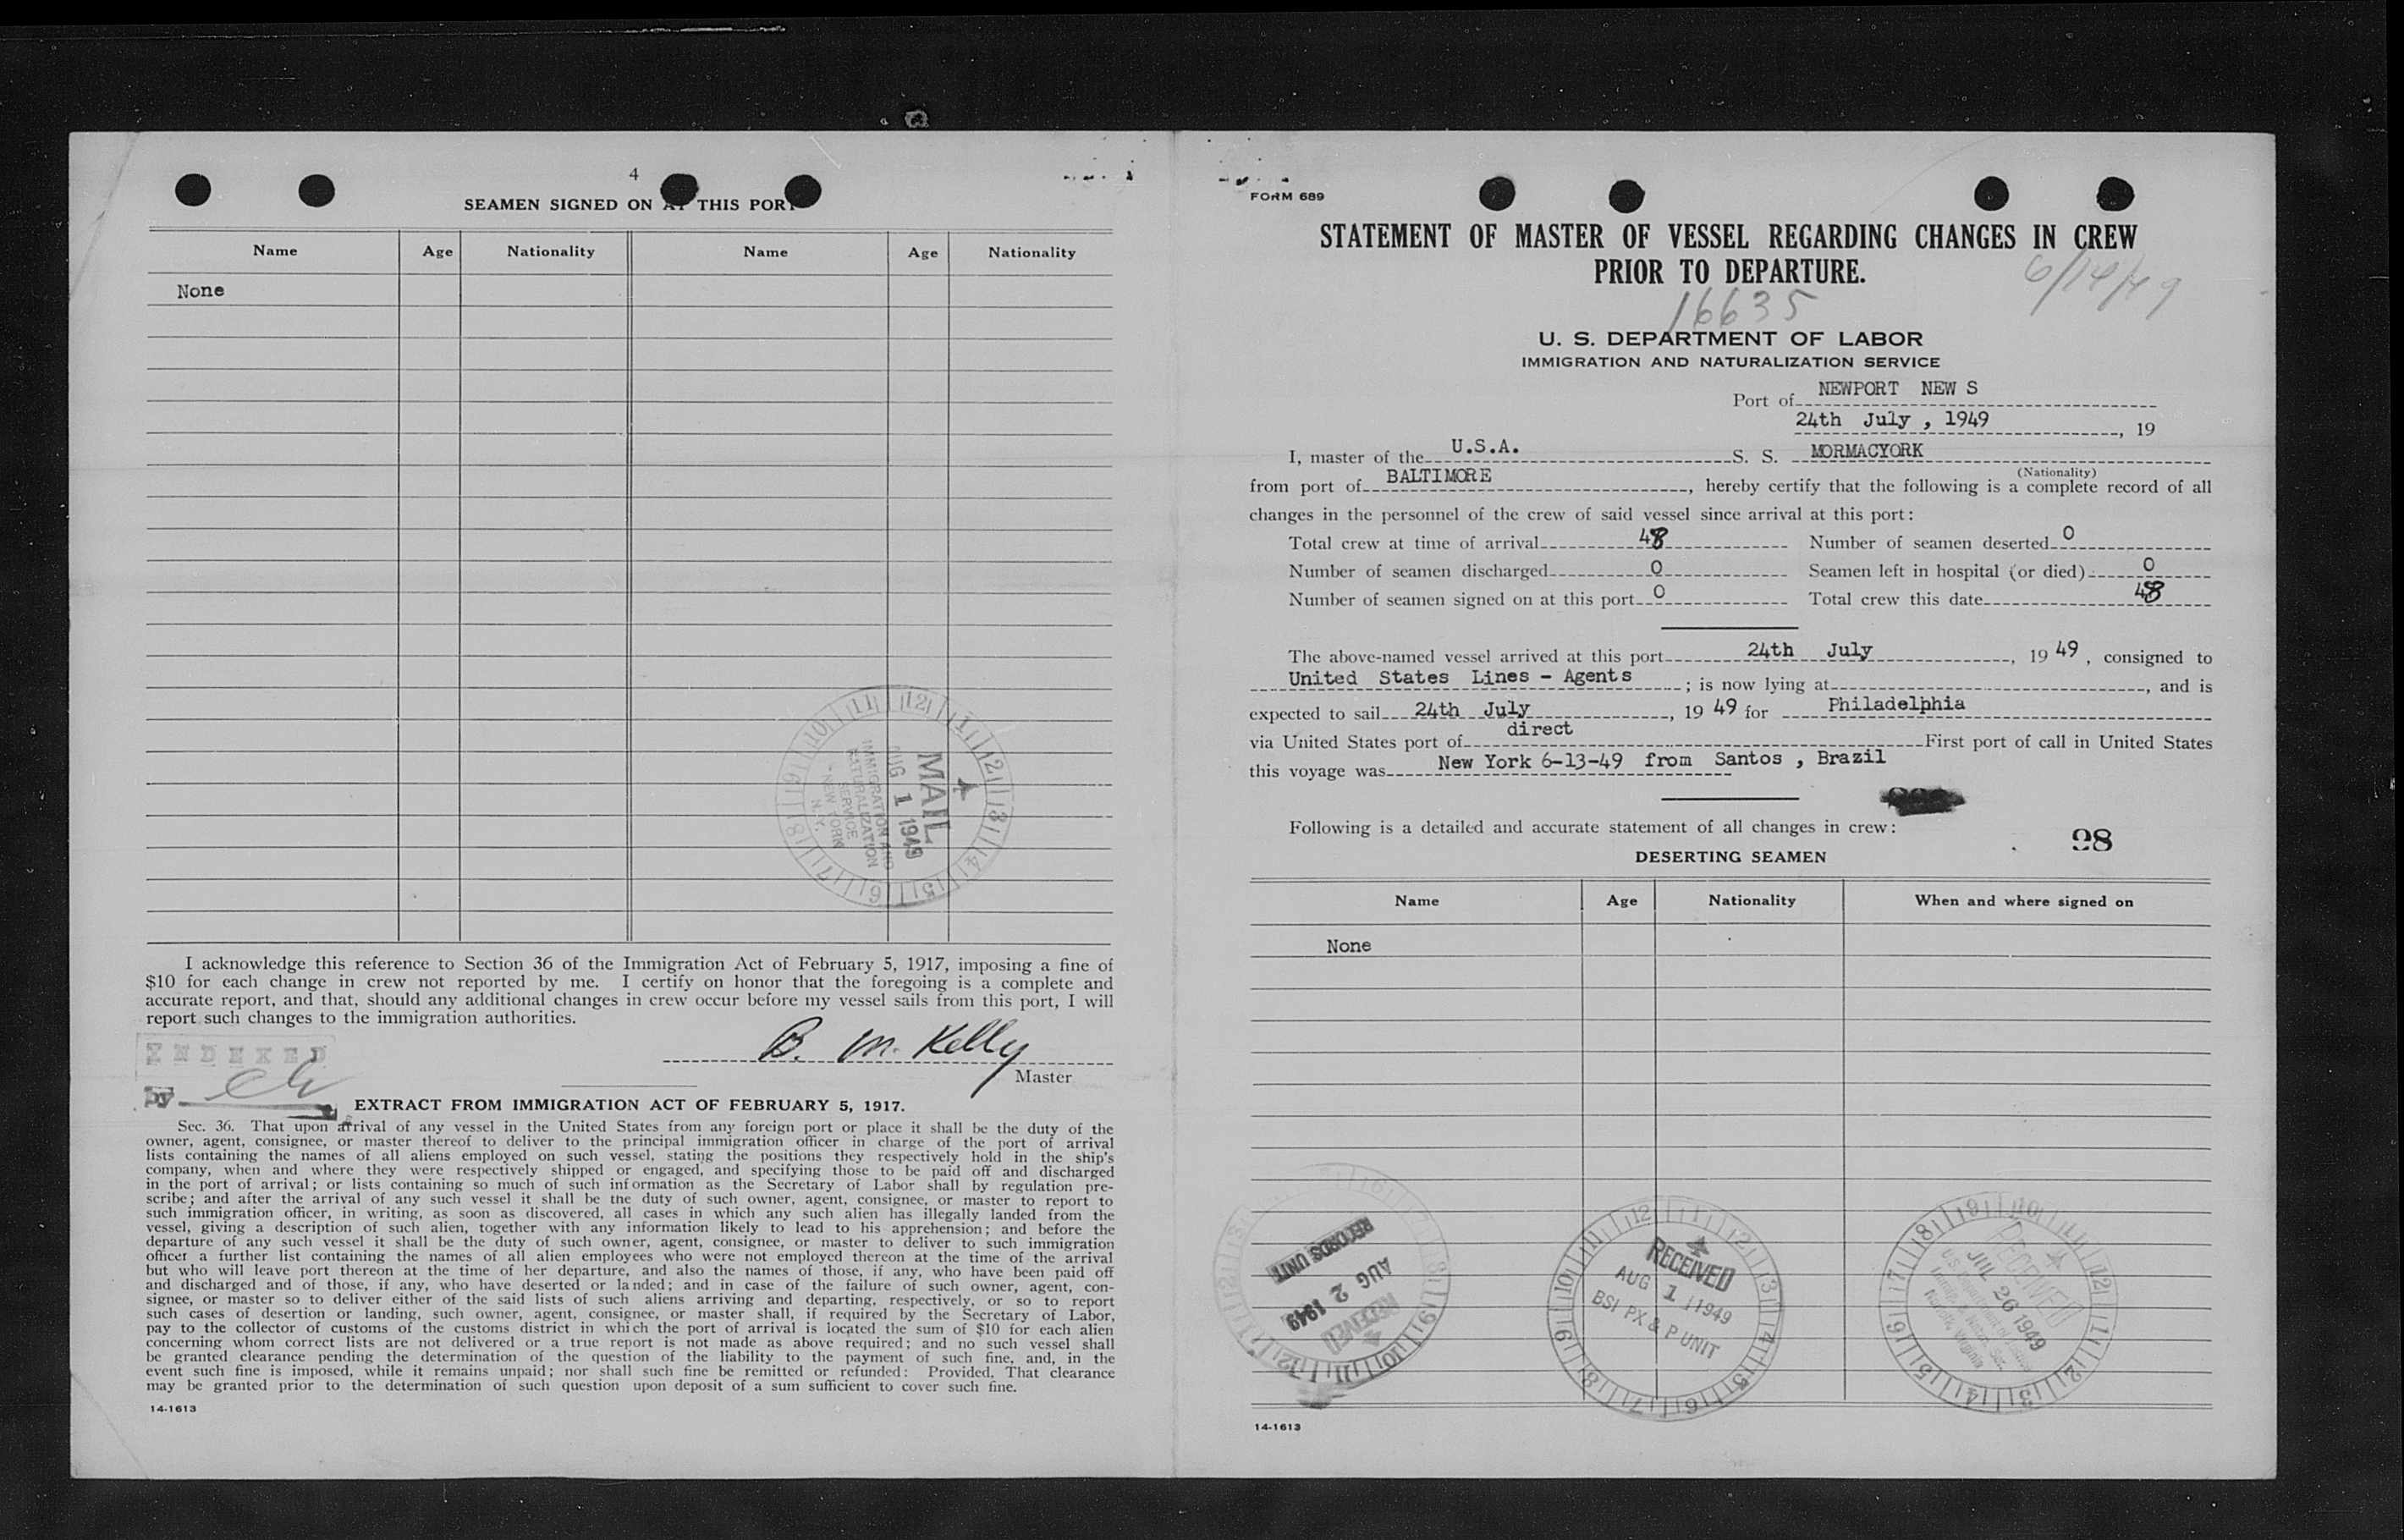 4
SEAMEN SIGNED ON AT THIS PORT
Name Age Nationality Name Age Nationality
None
MAIL
AUG 1 1949
IMMIGRATION AND
NATURALIZATION
SERVICE
NEW YORK
N.Y.
I acknowledge this reference to Section 36 of the Immigration Act of February 5, 1917, imposing a fine of
$10 for each change in crew not reported by me. I certify on honor that the foregoing is a complete and
accurate report, and that, should any additional changes in crew occur before my vessel sails from this port, I will
report such changes to the immigration authorities.
INDEXED
B. M. Kelly
Master
by
EXTRACT FROM IMMIGRATION ACT OF FEBRUARY 5, 1917.
Sec. 36. That upon arrival of any vessel in the United States from any foreign port or place it shall be the duty of the
owner, agent, consignee, or master thereof to deliver to the principal immigration officer in charge of the port of arrival
lists containing the names of all aliens employed on such vessel, stating the positions they respectively hold in the ship's
company, when and where they were respectively shipped or engaged, and specifying those to be paid off and discharged
in the port of arrival; or lists containing so much of such information as the Secretary of Labor shall by regulation pre-
scribe; and after the arrival of any such vessel it shall be the duty of such owner, agent, consignee, or master to report to
such immigration officer, in writing, as soon as discovered, all cases in which any such alien has illegally landed from the
vessel, giving a description of such alien, together with any information likely to lead to his apprehension; and before the
departure of any such vessel it shall be the duty of such owner, agent, consignee, or master to deliver to such immigration
officer a further list containing the names of all alien employees who were not employed thereon at the time of the arrival
but who will leave port thereon at the time of her departure, and also the names of those, if any, who have been paid off
and discharged and of those, if any, who have deserted or landed; and in case of the failure of such owner, agent, con-
signee, or master so to deliver either of the said lists of such aliens arriving and departing, respectively, or so to report
such cases of desertion or landing, such owner, agent, consignee, or master shall, if required by the Secretary of Labor,
pay to the collector of customs of the customs district in which the port of arrival is located the sum of $10 for each alien
concerning whom correct lists are not delivered or a true report is not made as above required; and no such vessel shall
be granted clearance pending the determination of the question of the liability to the payment of such fine, and, in the
event such fine is imposed, while it remains unpaid; nor shall such fine be remitted or refunded: Provided, That clearance
may be granted prior to the determination of such question upon deposit of a sum sufficient to cover such fine.
14-1613
FORM 689
STATEMENT OF MASTER OF VESSEL REGARDING CHANGES IN CREW
PRIOR TO DEPARTURE.
6/14/49
16635
U. S. DEPARTMENT OF LABOR
IMMIGRATION AND NATURALIZATION SERVICE
Port of NEWPORT NEW S
24th July , 1949 , 19
I, master of the U.S.A. S. S. MORMACYORK
(Nationality)
from port of BALTIMORE , hereby certify that the following is a complete record of all
changes in the personnel of the crew of said vessel since arrival at this port:
Total crew at time of arrival 48 Number of seamen deserted 0
Number of seamen discharged 0 Seamen left in hospital (or died) 0
Number of seamen signed on at this port 0 Total crew this date 48
The above-named vessel arrived at this port 24th July , 19 49 , consigned to
United States Lines - Agents ; is now lying at , and is
expected to sail 24th July , 19 49 for Philadelphia
via United States port of direct First port of call in United States
this voyage was New York 6-13-49 from Santos , Brazil
Following is a detailed and accurate statement of all changes in crew:
98
DESERTING SEAMEN
Name Age Nationality When and where signed on
None
RECORDS UNIT
AUG 2 1949
RECEIVED
RECEIVED
AUG 1 1949
BSI PX & P UNIT
RECEIVED
JUL 26 1949
Norfolk, Virginia
14-1613